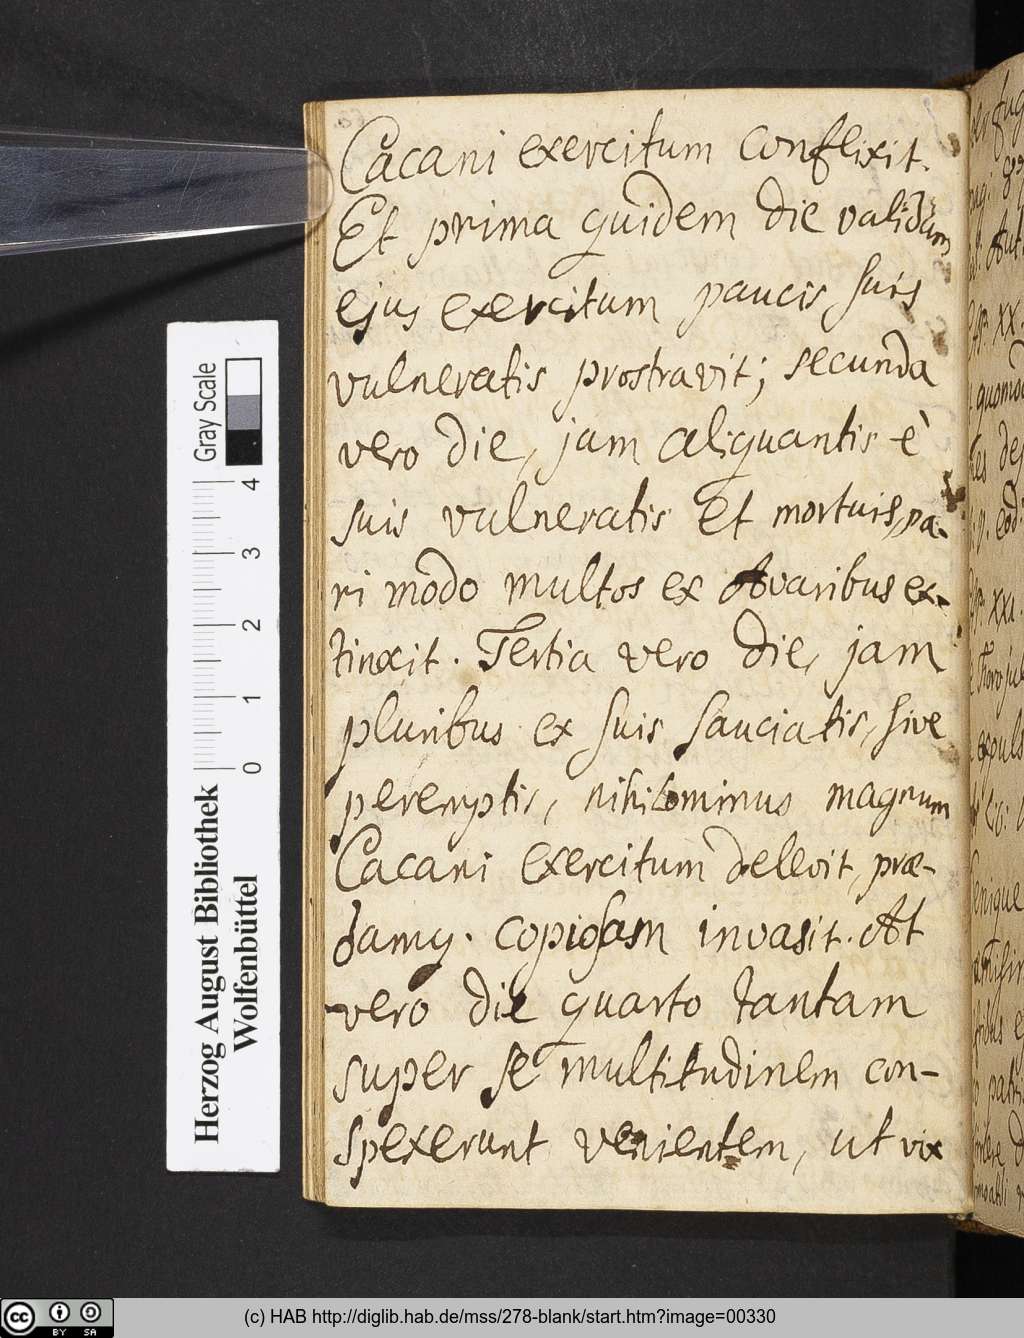 Cacani exercitum conflixit.
Et prima quidem die validum
ejus exercitum paucis suis
vulneratis prostravit; secunda
vero die, jam aliquantis è
suis vulneratis Et mortuis, pa-
ri modo multos ex Avaribus ex-
tinxit. Tertia vero die, jam
pluribus ex suis sauciatis, sive
peremptis, nihilominus magnum
Cacani exercitum delevit, præ-
damq. copiosam invasit. At
vero die quarto tantam
super se multitudinem con-
spexerunt venientem, ut vix
Gray Scale
4
3
2
1
0
Herzog August Bibliothek
Wolfenbüttel
cc
BY SA
(c) HAB http://diglib.hab.de/mss/278-blank/start.htm?image=00330